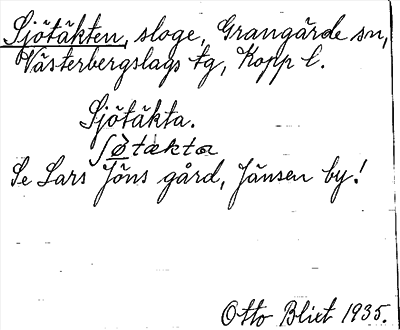 Sjötäkten, sloge, Grangärde sn,
Västerbergslags tg, Kopp l.
Sjötäkta.
ʃø̀tækta
Se Lars Jöns gård, Jänsen by!
Otto Blixt 1935.